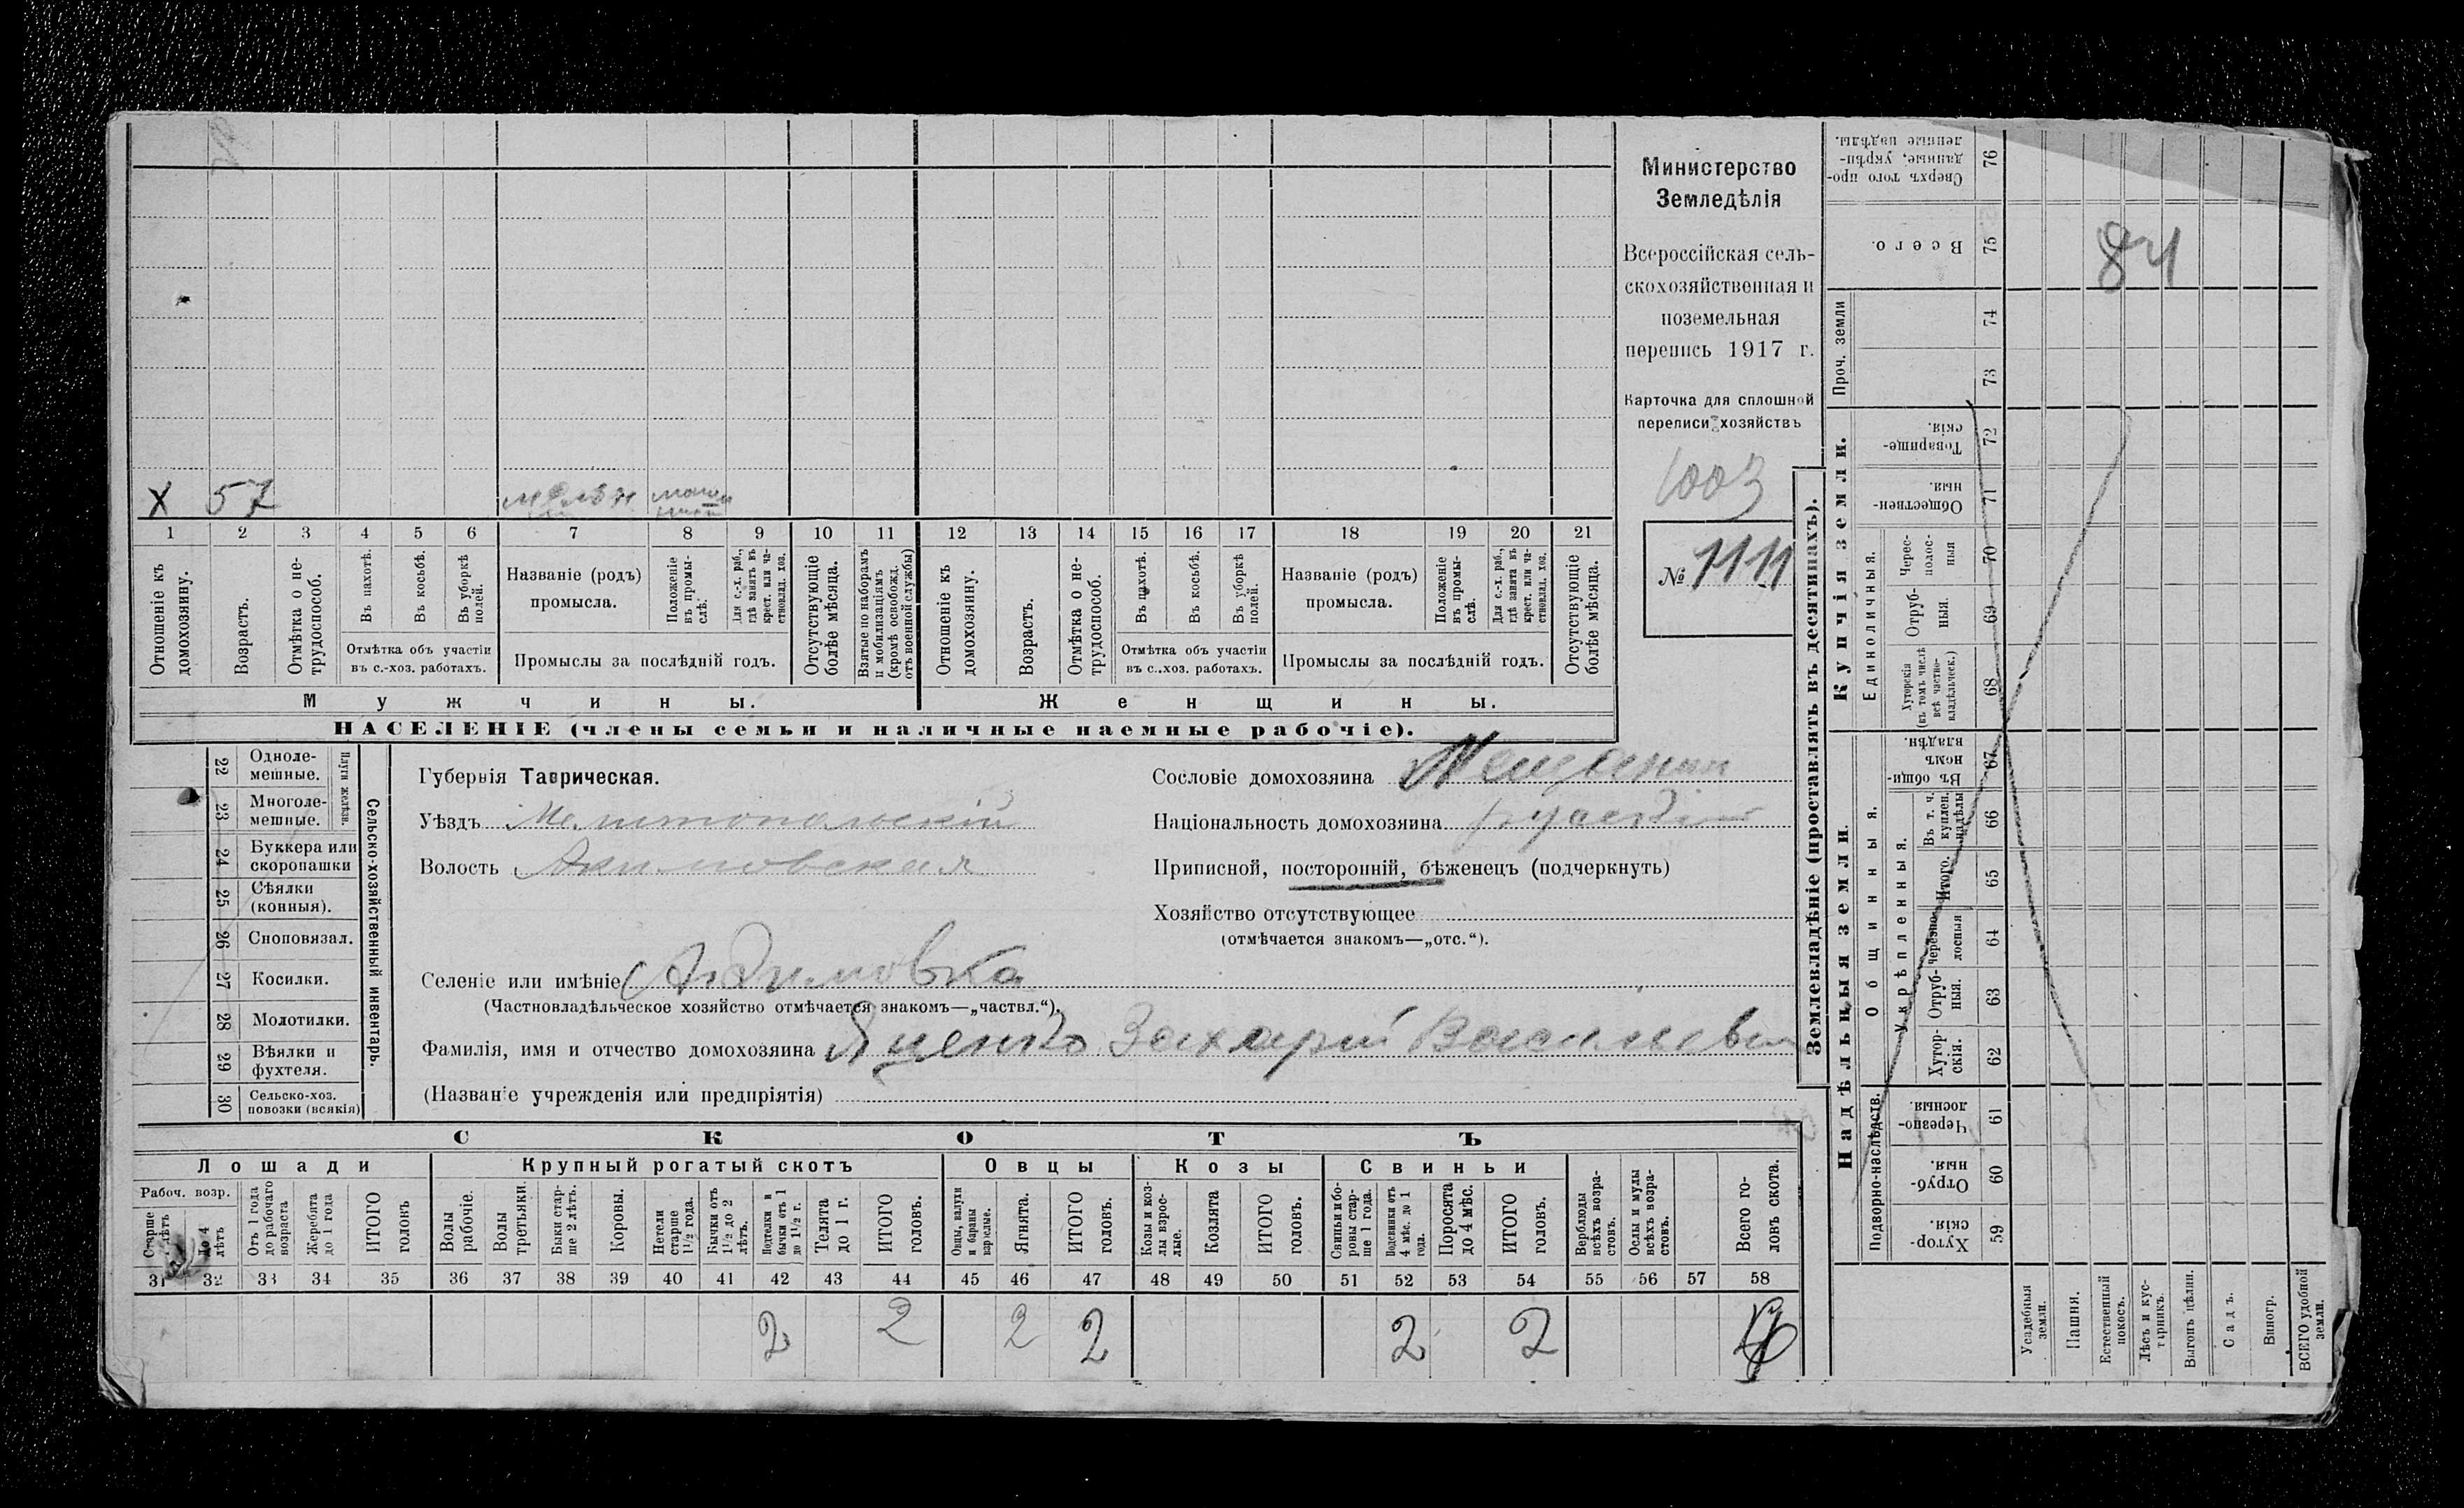 Министерство
Земледѣлія
Всероссійская сель-
скохозяйственная и
поземельная
перепись 1917 г.
Карточка для сплошной
переписи хозяйствъ
1003
№ 1111
Х 57
1 2 3 4 5 6 7 8 9 10 11 12 13 14 15 16 17 18 19 20 21
Отношеніе къ домохозяину.
Возрастъ.
Отмѣтка о не-трудоспособ.
Въ пахотѣ.
Въ косьбѣ.
Въ уборкѣ полей.
Отмѣтка объ участіи
въ с.-хоз. работахъ.
Названіе (родъ)
промысла.
Положеніе въ промы-слѣ.
Для с.-х. раб., гдѣ занятъ въ крест. или ча-стновлад. хоз.
Промыслы за послѣдній годъ.
Отсутствующіе болѣе мѣсяца.
Взятые по наборамъ и мобилизаціямъ (кромѣ освобожд. отъ военной службы)
Отношеніе къ домохозяину.
Возрастъ.
Отмѣтка о не-трудоспособ.
Въ пахотѣ.
Въ косьбѣ.
Въ уборкѣ полей.
Отмѣтка объ участіи
въ с.-хоз. работахъ.
Названіе (родъ)
промысла.
Положеніе въ промы-слѣ.
Для с.-х. раб., гдѣ занята въ крест. или ча-стновлад. хоз.
Промыслы за послѣдній годъ.
Отсутствующіе болѣе мѣсяца.
Мужчины.
Женщины.
НАСЕЛЕНІЕ (члены семьи и наличные наемные рабочіе).
22 Одноле-мешные.
23 Многоле-мешные.
Плуги желѣзн.
24 Буккера или скоропашки
25 Сѣялки (конныя).
26 Сноповязал.
27 Косилки.
28 Молотилки.
29 Вѣялки и фухтеля.
30 Сельско-хоз. повозки (всякія)
Сельско-хозяйственный инвентарь.
Губернія Таврическая.
Уѣздъ Мелитопольскій
Волость Акимовская
Сословіе домохозяина Мещанин
Національность домохозяина русскій
Приписной, посторонній, бѣженецъ (подчеркнуть)
Хозяйство отсутствующее
(отмѣчается знакомъ—„отс.“).
Селеніе или имѣніе Акимовка
(Частновладѣльческое хозяйство отмѣчается знакомъ—„частвл.“).
Фамилія, имя и отчество домохозяина Яценко Захарій Васильевич
(Названіе учрежденія или предпріятія)
СКОТЪ
Лошади
Крупный рогатый скотъ
Овцы
Козы
Свиньи
Рабоч. возр.
Старше лѣтъ
до 4 лѣтъ
Отъ 1 года до рабочаго возраста
Жеребята до 1 года
ИТОГО головъ
Волы рабочіе.
Волы третьяки.
Быки стар-ше 2 лѣтъ.
Коровы.
Нетели старше 1½ года.
Бычки отъ 1½ до 2 лѣтъ.
Подтелки и бычки отъ 1 до 1½ г.
Телята до 1 г.
ИТОГО головъ.
Овцы, валухи и бараны взрослые.
Ягнята.
ИТОГО головъ.
Козы и коз-лы взрос-лые.
Козлята
ИТОГО головъ.
Свиньи и бо-ровы стар-ше 1 года.
Подсвинки отъ 4 мѣс. до 1 года.
Поросята до 4 мѣс.
ИТОГО головъ.
Верблюды всѣхъ возра-стовъ.
Ослы и мулы всѣхъ возра-стовъ.
Всего го-ловъ скота.
31 32 33 34 35 36 37 38 39 40 41 42 43 44 45 46 47 48 49 50 51 52 53 54 55 56 57 58
2 2 2 2 2 2
Землевладѣніе (проставлять въ десятинахъ).
Надѣльныя земли.
Купчія земли.
Проч. земли
Подворно-наслѣдств.
Общинныя.
Укрѣпленныя.
Единоличныя.
Сверхъ того про-данные, укрѣп-ленные надѣлы. 76
Всего. 75
74
73
Товарище-скія. 72
Обществен-ныя. 71
Черес-полос-ныя 70
Отруб-ныя. 69
Хуторскія (въ томъ числѣ всѣ частно-владѣльческ.) 68
Въ общи-номъ владѣн. 67
Въ т. ч. куплен. надѣлы 66
Итого. 65
Черезпо-лосныя 64
Отруб-ныя. 63
Хутор-скія. 62
Черезпо-лосныя. 61
Отруб-ныя. 60
Хутор-скія. 59
Усадебныя земли.
Пашня.
Естественный покосъ.
Лѣсъ и кус-тарникъ.
Выгонъ цѣлин.
Садъ.
Виногр.
ВСЕГО удобной земли.
84